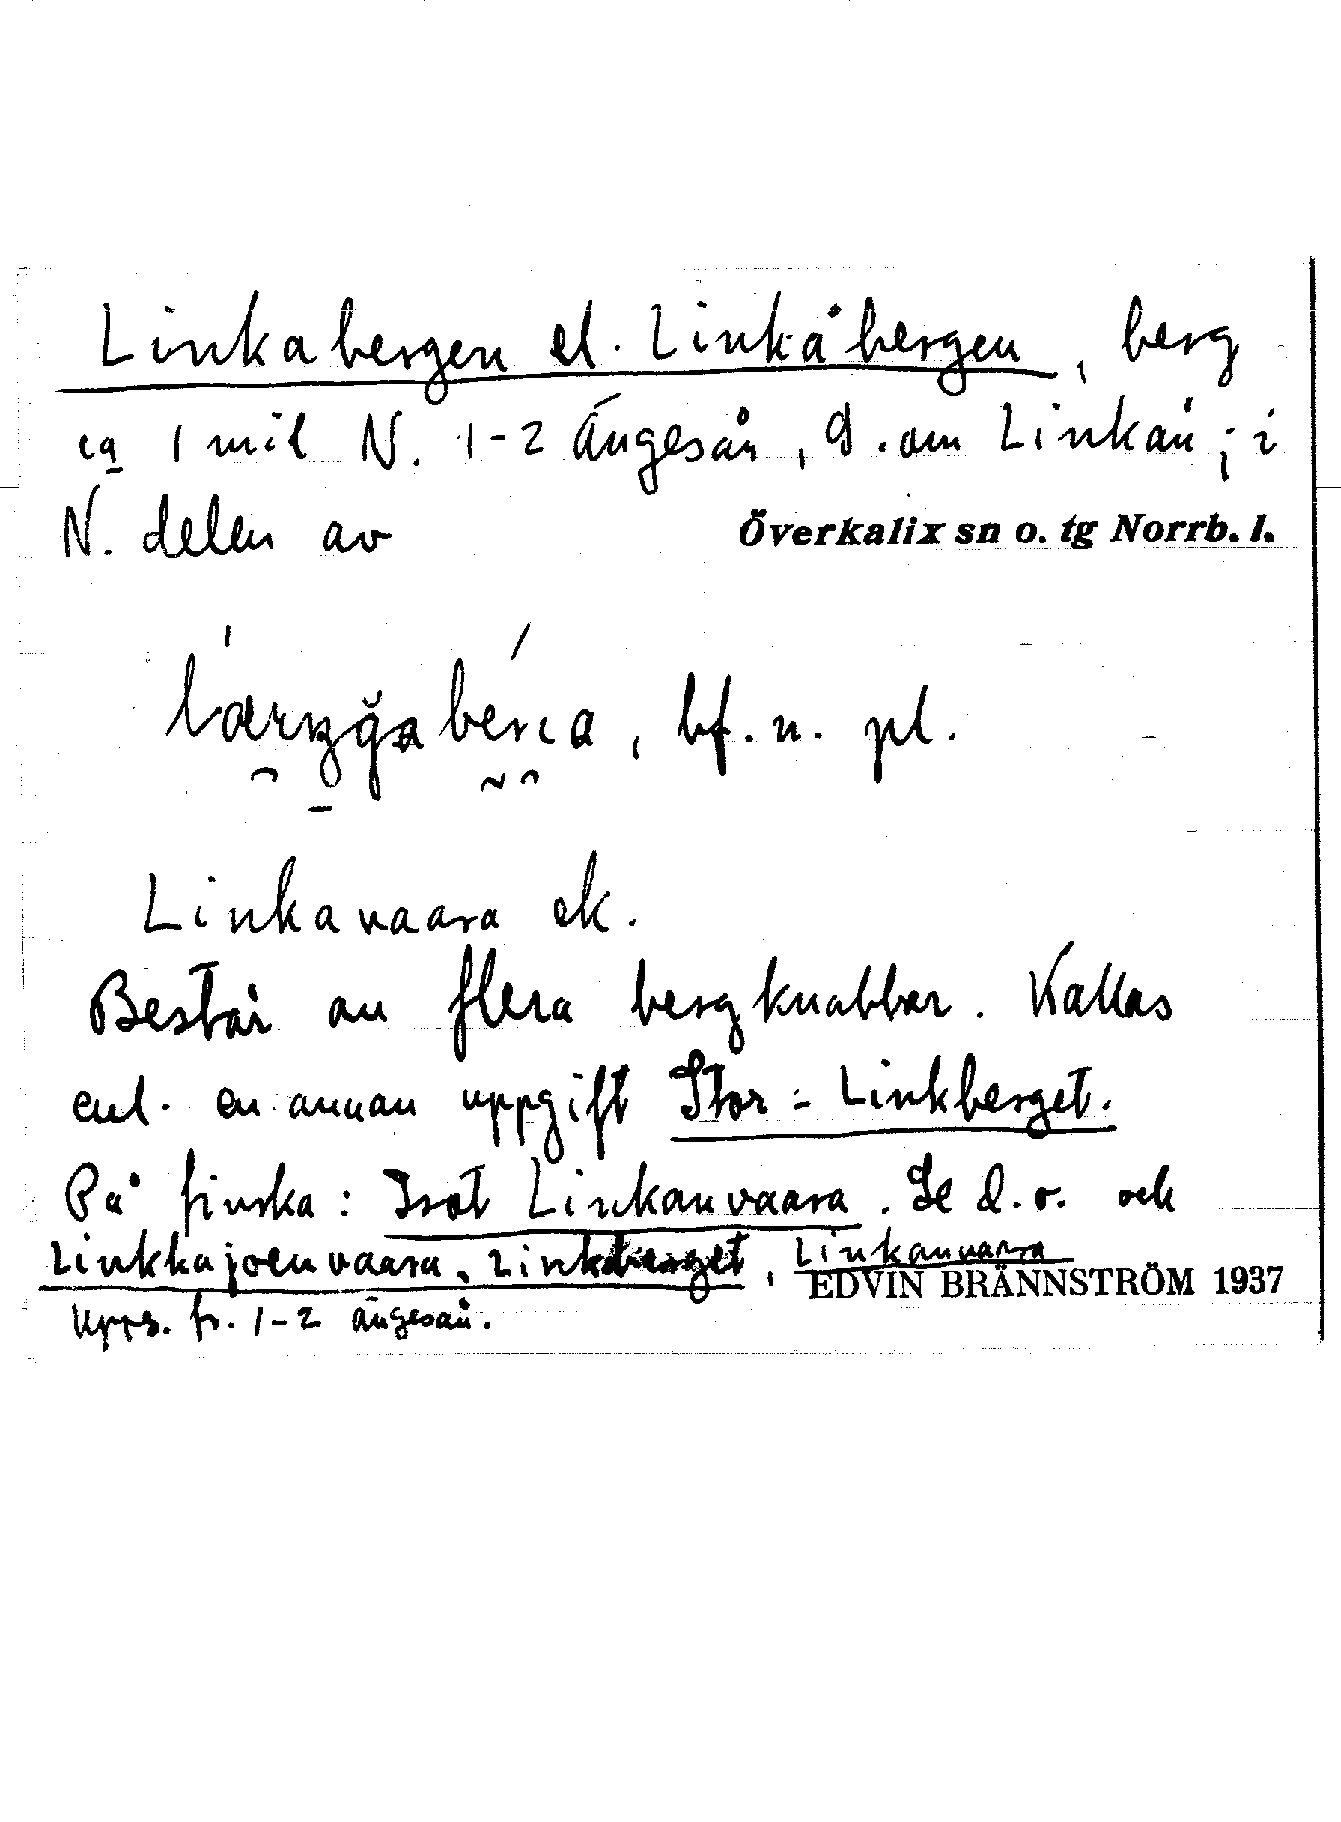 Linkabergen el. Linkåbergen, berg
ca 1 mil N. 1-2 Ängesån, S. om Linkån; i
N. delen av Överkalix sn o. tg Norrb. l.
bf. n. pl.
Linkavaara ek.
Består av flera bergknabbar. Kallas
enl. en annan uppgift Stor-Linkberget.
På finska: Isot Linkanvaara. Se d. o. och
Linkkajoenvaara, Linkberget, Linkanvaara
EDVIN BRÄNNSTRÖM 1937
Upps. fr. 1-2 Ängesån.